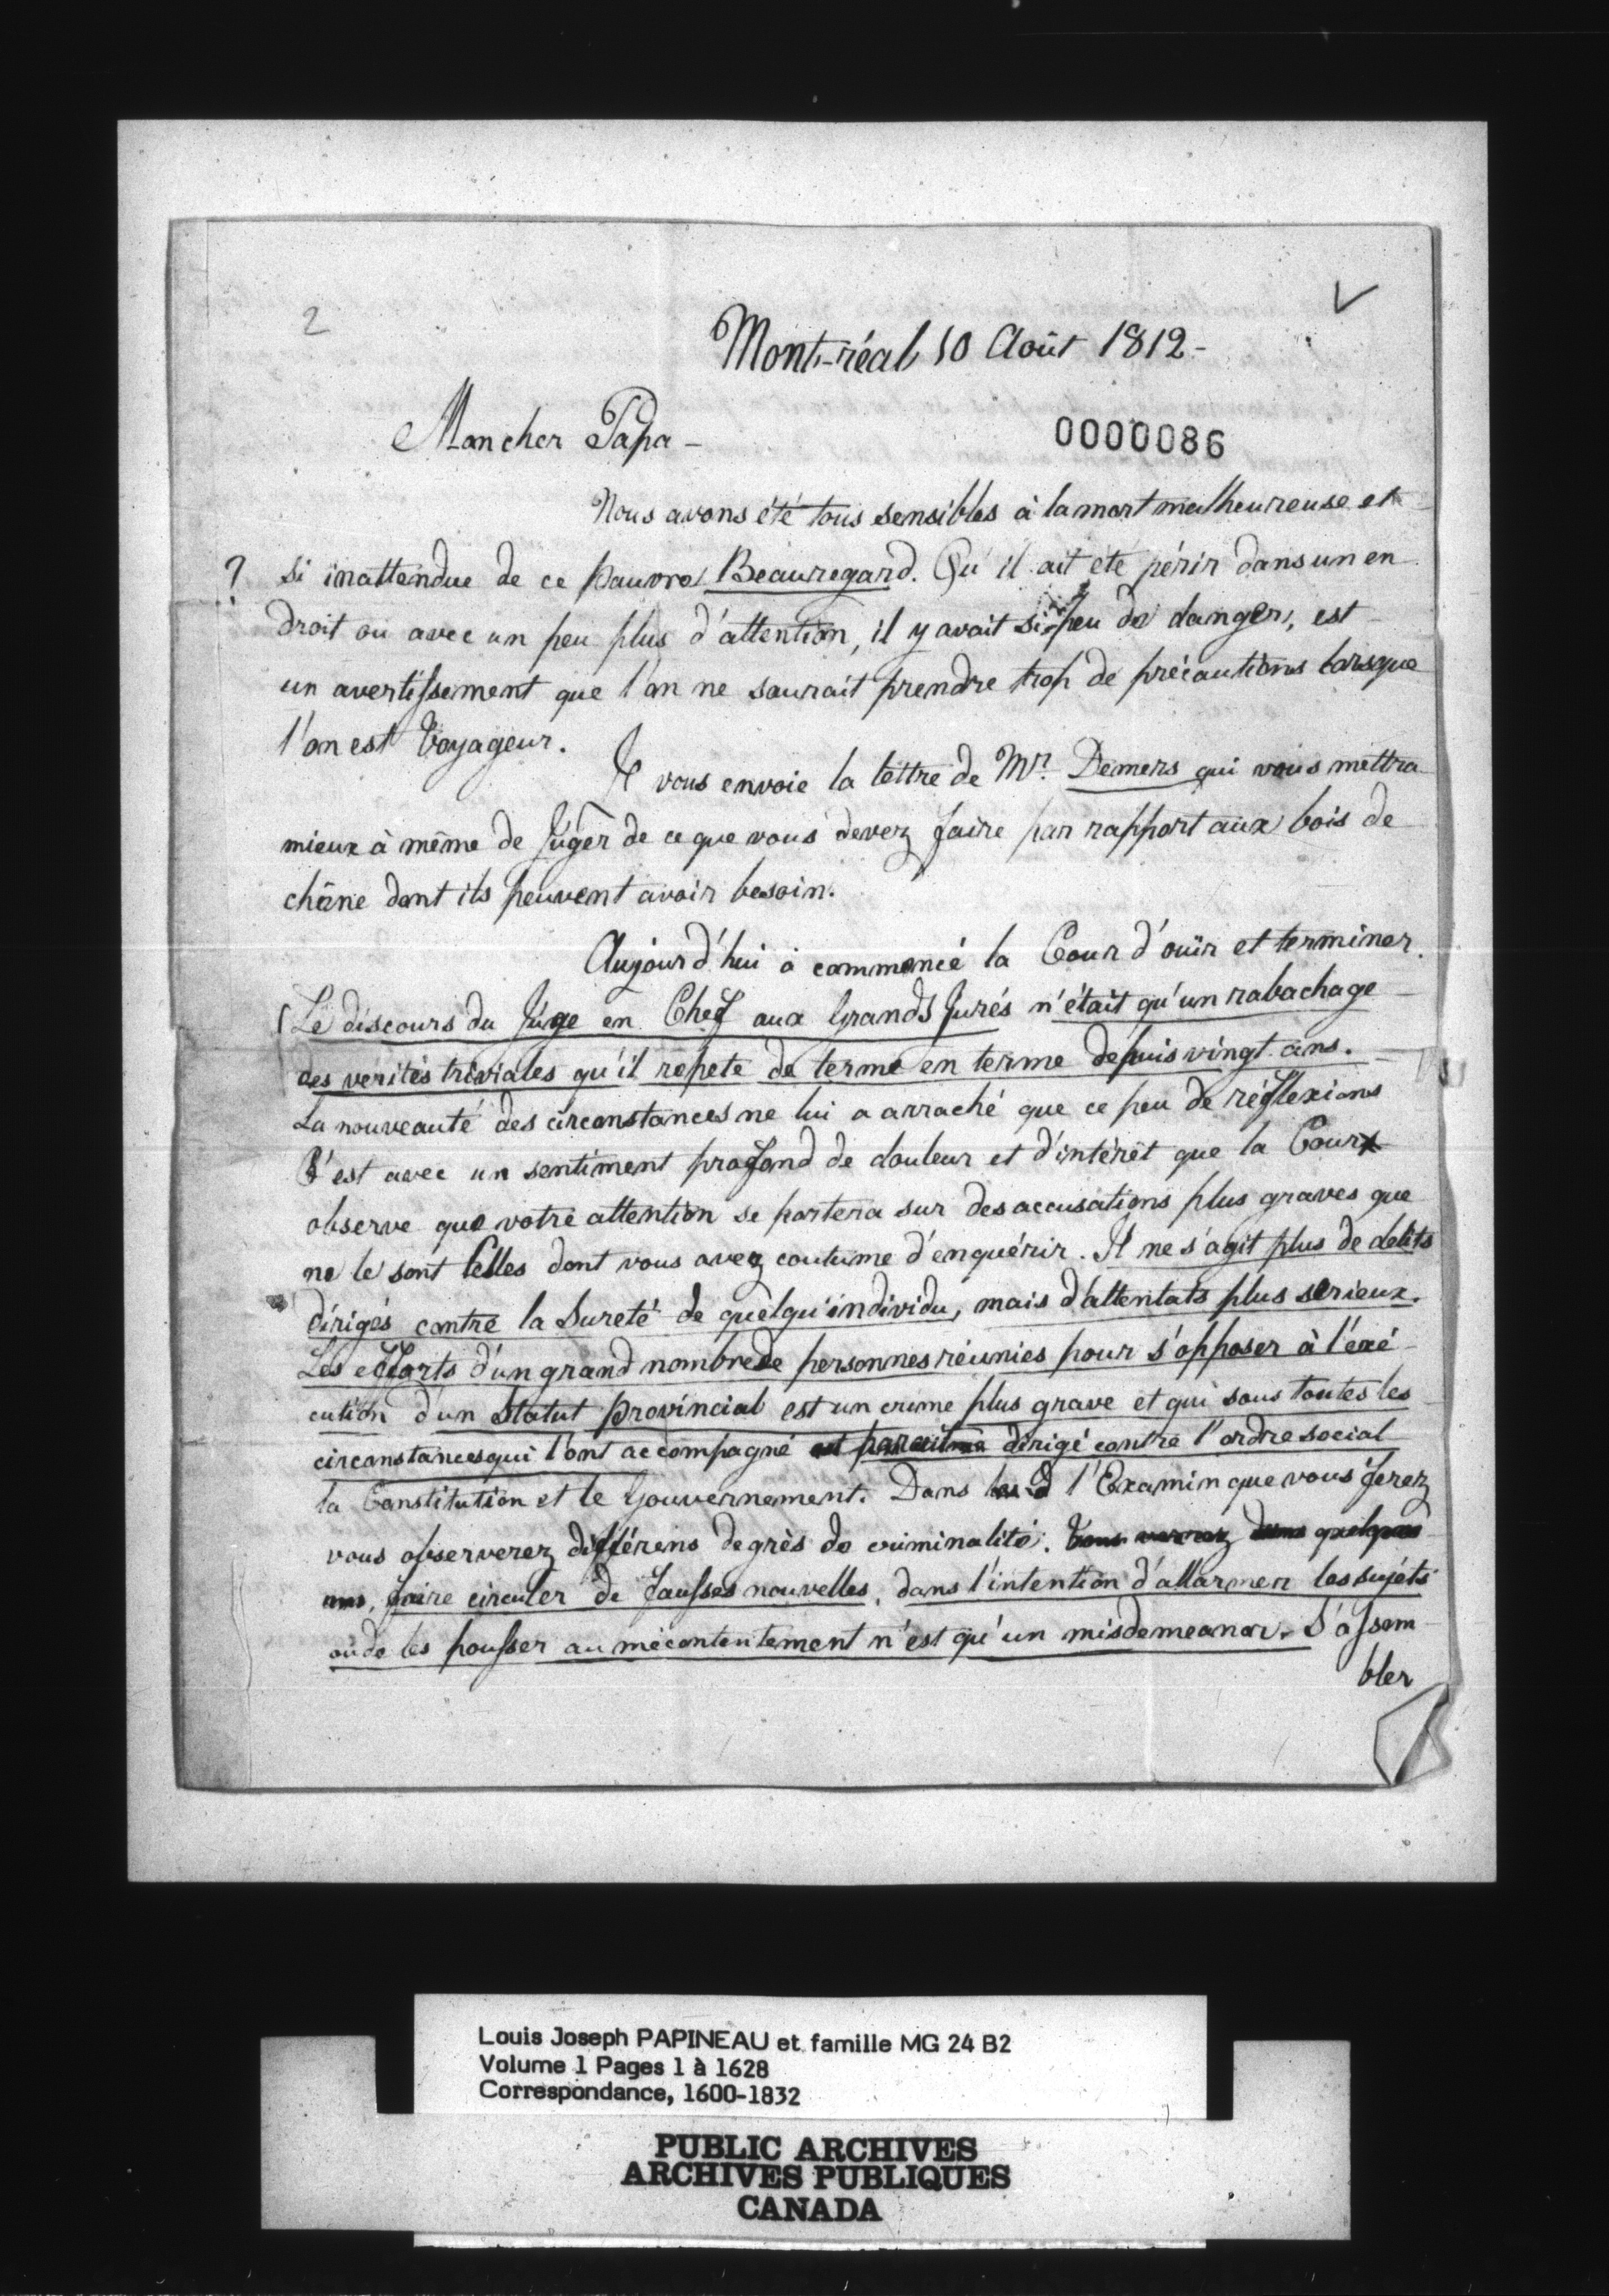 2
Mont-réal, 10 Août 1812-
Mon cher Papa-
0000086
Nous avons été tous sensibles à la mort malheureuse et
? si inattendue de ce pauvre Beauregard. Qu'il ait été périr dans un en
droit ou avec un peu plus d'attention, il y avait si peu de danger, est
un avertissement que l'on ne saurait prendre trop de précautions lorsque
l'on est Voyageur.
Je vous envoie la lettre de Mr. Demers qui vous mettra
mieux à même de Juger de ce que vous devez faire par rapport aux bois de
chêne dont ils peuvent avoir besoin.
Aujourd'hui a commencé la Cour d'ouïr et terminer.
(Le discours du Juge en Chef aux Grands Jurés n'était qu'un rabachage
des verités triviales qu'il repete de terme en terme depuis vingt ans.
La nouveauté des circonstances ne lui a arraché que ce peu de réflexions
C'est avec un sentiment profond de douleur et d'intérêt que la Cour
observe que votre attention se portera sur des accusations plus graves que
ne le sont Celles dont vous avez coutume d'enquérir. Il ne s'agit plus de delits
dirigés contre la Sureté de quelqu'individu, mais d'attentats plus serieux.
Les efforts d'un grand nombre de personnes réunies pour s'opposer à l'exé
cution d'un Statut provincial est un crime plus grave et qui sous toutes les
circonstances qui l'ont accompagné est dirigé contre l'ordre social
la Constitution et le Gouvernement. Dans l'Examin que vous ferez
vous observerez différens degrès de criminalité. Vous verrez dans quelques
uns, faire circuler de fausses nouvelles, dans l'intention d'allarmer les sujéts
ou de les pousser au mécontentement n'est qu'un misdemeanor. S'assem
bler
Louis Joseph PAPINEAU et famille MG 24 B2
Volume 1 Pages 1 à 1628
Correspondance, 1600-1832
PUBLIC ARCHIVES
ARCHIVES PUBLIQUES
CANADA